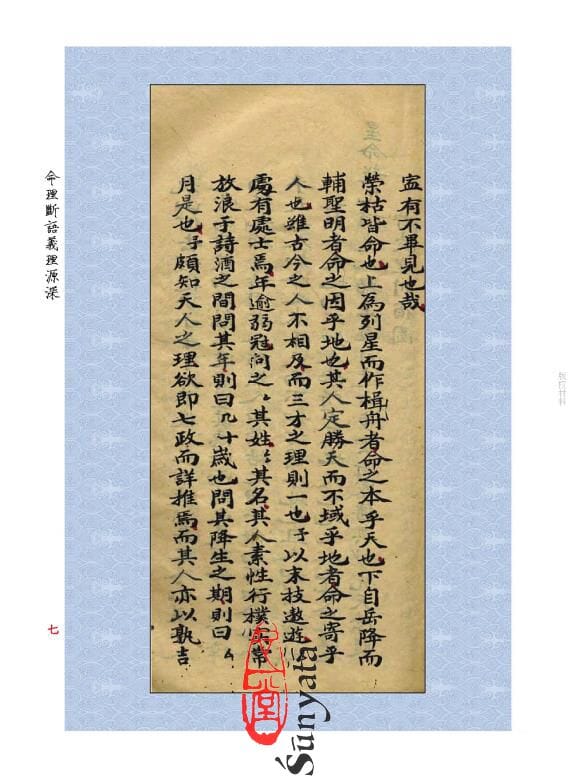 寍有不畢見也哉
榮枯皆命也上為列星而作楫舟者命之本乎天也下自岳降而
輔聖明者命之因乎地也其人定勝天而不域乎地者命之寄乎
人也雖古今之人不相及而三才之理則一也予以末技遨遊
處有處士焉年逾弱冠问之ㄙ其姓ㄙ其名其人素性行樸常
放浪于詩酒之間問其年則曰九十歲也問其降生之期則曰ㄙ
月是也予頗知天人之理欲即七政而詳推焉而其人亦以孰吉
命理斷語義理源深
七
版权材料
Śūnyata